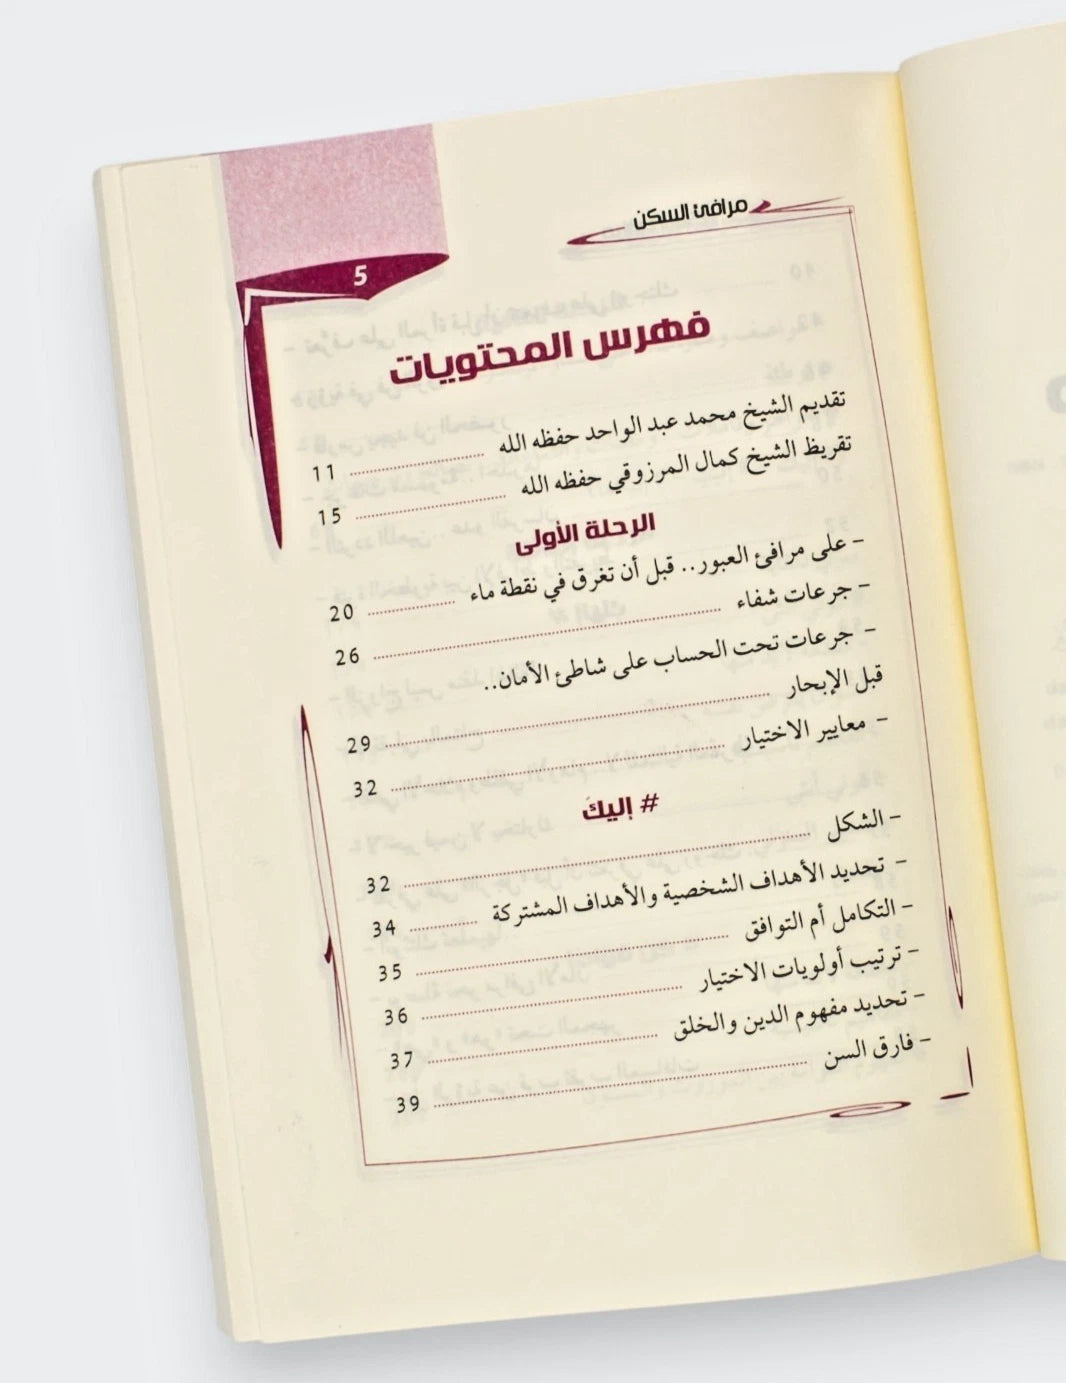 مرافئ السكن
5
فهرس المحتويات
تقديم الشيخ محمد عبد الواحد حفظه الله ........ 11
تقريظ الشيخ كمال المرزوقي حفظه الله ........ 15
الرحلة الأولى
- على مرافئ العبور.. قبل أن تغرق في نقطة ماء ........ 20
- جرعات شفاء ........ 26
- جرعات تحت الحساب على شاطئ الأمان..
قبل الإبحار ........ 29
- معايير الاختيار ........ 32
# إليكَ
- الشكل ........ 32
- تحديد الأهداف الشخصية والأهداف المشتركة ........ 34
- التكامل أم التوافق ........ 35
- ترتيب أولويات الاختيار ........ 36
- تحديد مفهوم الدين والخلق ........ 37
- فارق السن ........ 39